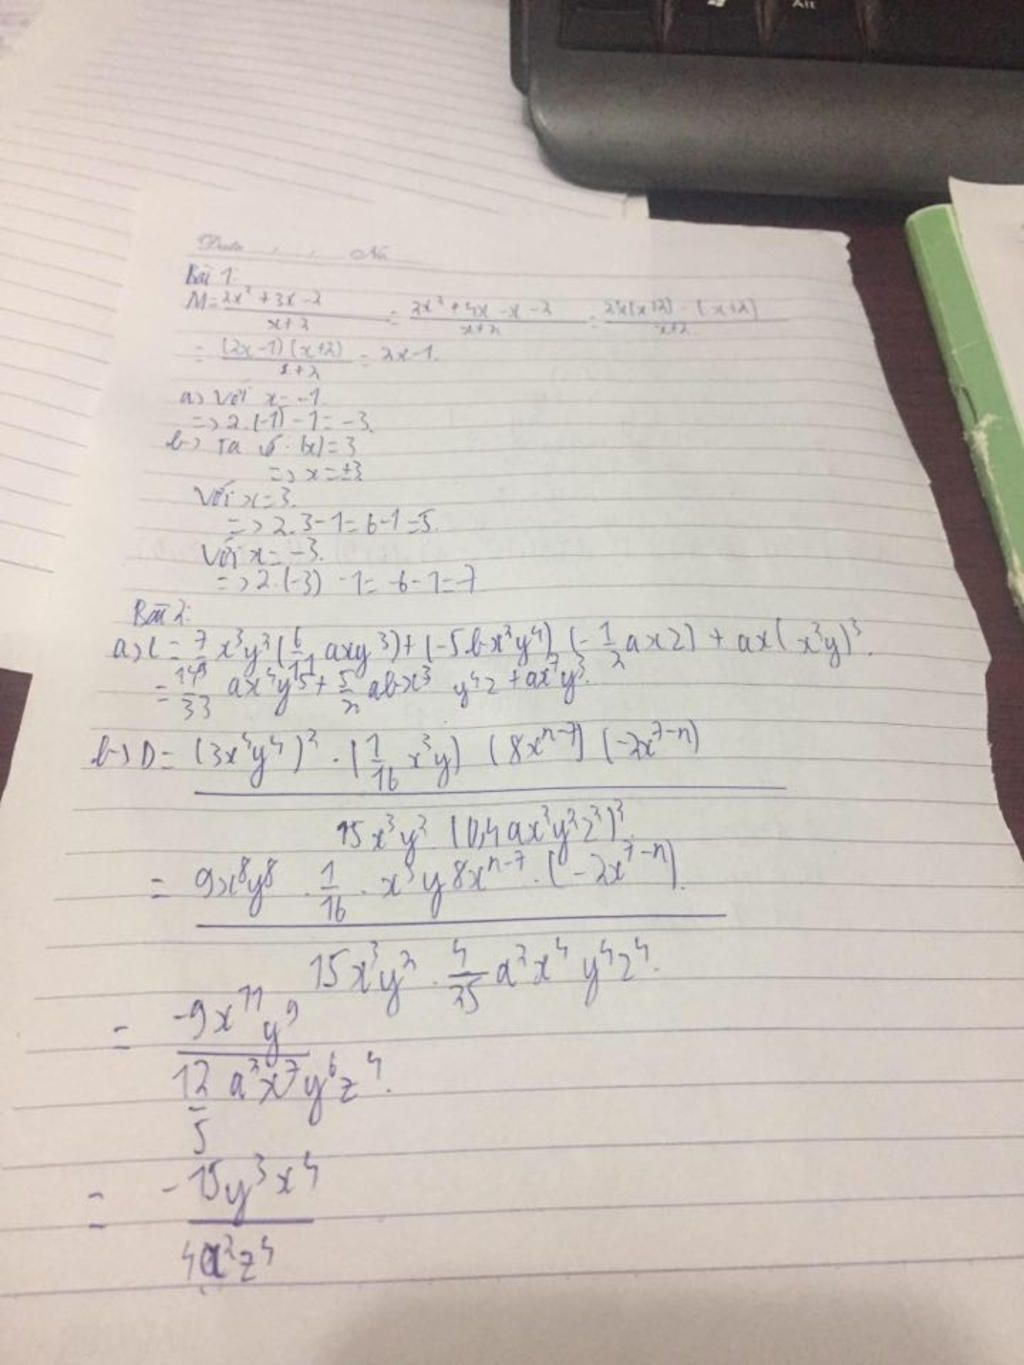 Alt
Date No
Bài 1:
M = (2x² + 3x - 2)/(x + 2) = (2x² + 4x - x - 2)/(x + 2) = (2x(x+2) - (x+2))/(x+2)
= ((2x-1)(x+2))/(x+2) = 2x-1.
a) Với x = -1
=> 2.(-1) - 1 = -3.
b) Ta có |x| = 3
=> x = ±3
Với x = 3.
=> 2.3 - 1 = 6 - 1 = 5.
Với x = -3.
=> 2.(-3) - 1 = -6 - 1 = -7
Bài 2:
a) C = 7/9 x³y²(6/11 axy³) + (-5bx²y⁴)(-1/2 axz) + ax(x²y)³.
= 14/33 ax⁴y⁵ + 5/2 abx³y⁴z + ax⁷y³.
b) D = (3x⁴y⁴)² . (1/16 x³y) (8xⁿ⁻⁷) (-2x⁷⁻ⁿ)
15x³y² (0,4ax²y²z²)²
= 9x⁸y⁸ . 1/16 . x³y 8xⁿ⁻⁷ . (-2x⁷⁻ⁿ).
15x³y² . 4/25 a²x⁴y⁴z⁴.
= (-9x¹¹y⁹)/(12/5 a²x⁷y⁶z⁴).
= (-15y³x⁴)/(4a²z⁴)